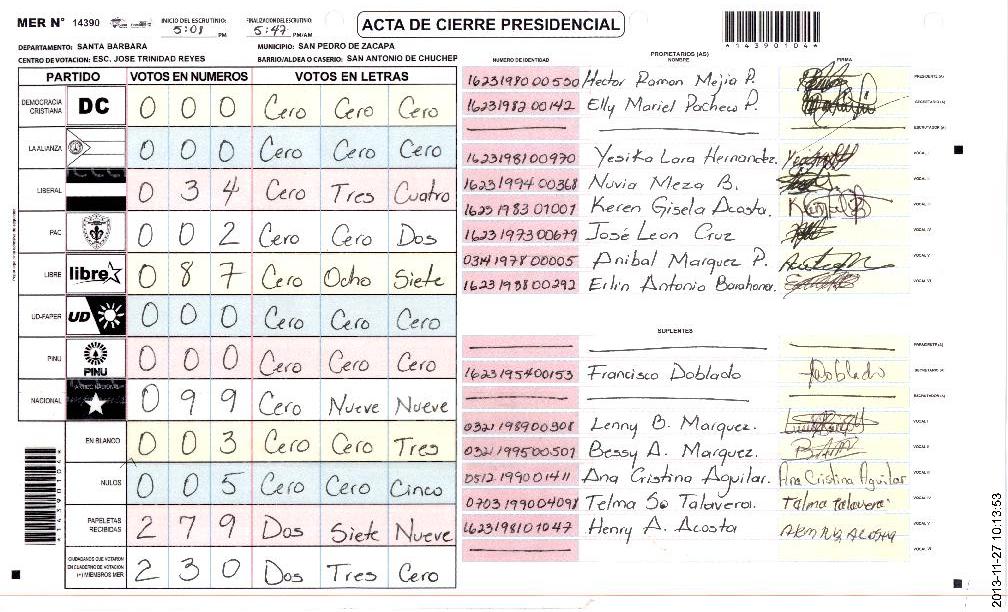 MER N° 14390
INICIO DEL ESCRUTINIO: 5:01 PM
FINALIZACION DEL ESCRUTINIO: 5:47 PM/AM
ACTA DE CIERRE PRESIDENCIAL
*14390104*
DEPARTAMENTO: SANTA BARBARA
MUNICIPIO: SAN PEDRO DE ZACAPA
CENTRO DE VOTACION: ESC. JOSE TRINIDAD REYES
BARRIO/ALDEA O CASERIO: SAN ANTONIO DE CHUCHEP
PARTIDO VOTOS EN NUMEROS VOTOS EN LETRAS
DEMOCRACIA CRISTIANA DC 0 0 0 Cero Cero Cero
LA ALIANZA 0 0 0 Cero Cero Cero
LIBERAL 0 3 4 Cero Tres Cuatro
PAC 0 0 2 Cero Cero Dos
LIBRE libre 0 8 7 Cero Ocho Siete
UD-FAPER UD 0 0 0 Cero Cero Cero
PINU PINU 0 0 0 Cero Cero Cero
NACIONAL 0 9 9 Cero Nueve Nueve
EN BLANCO 0 0 3 Cero Cero Tres
NULOS 0 0 5 Cero Cero Cinco
PAPELETAS RECIBIDAS 2 7 9 Dos Siete Nueve
CIUDADANOS QUE VOTARON EN CUADERNO DE VOTACION (+) MIEMBROS MER 2 3 0 Dos Tres Cero
*14390104*
PROPIETARIOS (AS)
NUMERO DE IDENTIDAD NOMBRE FIRMA
1623198000530 Hector Ramon Mejia P. PRESIDENTE (A)
1623198200142 Elly Mariel Pacheco P. SECRETARIO (A)
ESCRUTADOR (A)
1623198100970 Yesika Lara Hernandez. VOCAL I
1623199400368 Nuvia Meza B. VOCAL II
1623198301001 Keren Gisela Acosta. VOCAL III
1623197300679 José Leon Cruz VOCAL IV
0314197800005 Anibal Marquez P. VOCAL V
1623198800292 Erlin Antonio Barahona. VOCAL VI
SUPLENTES
PRESIDENTE (A)
1623195400153 Francisco Doblado Doblado SECRETARIO (A)
ESCRUTADOR (A)
0321198900308 Lenny B. Marquez. VOCAL I
0321199500501 Bessy A. Marquez. VOCAL II
0512199001411 Ana Cristina Aguilar. Ana Cristina Aguilar VOCAL III
0703199004098 Telma So Talavera. Telma talavera VOCAL IV
1623198101047 Henry A. Acosta HENRY ACOSTA VOCAL V
VOCAL VI
2013-11-27 10:13:53